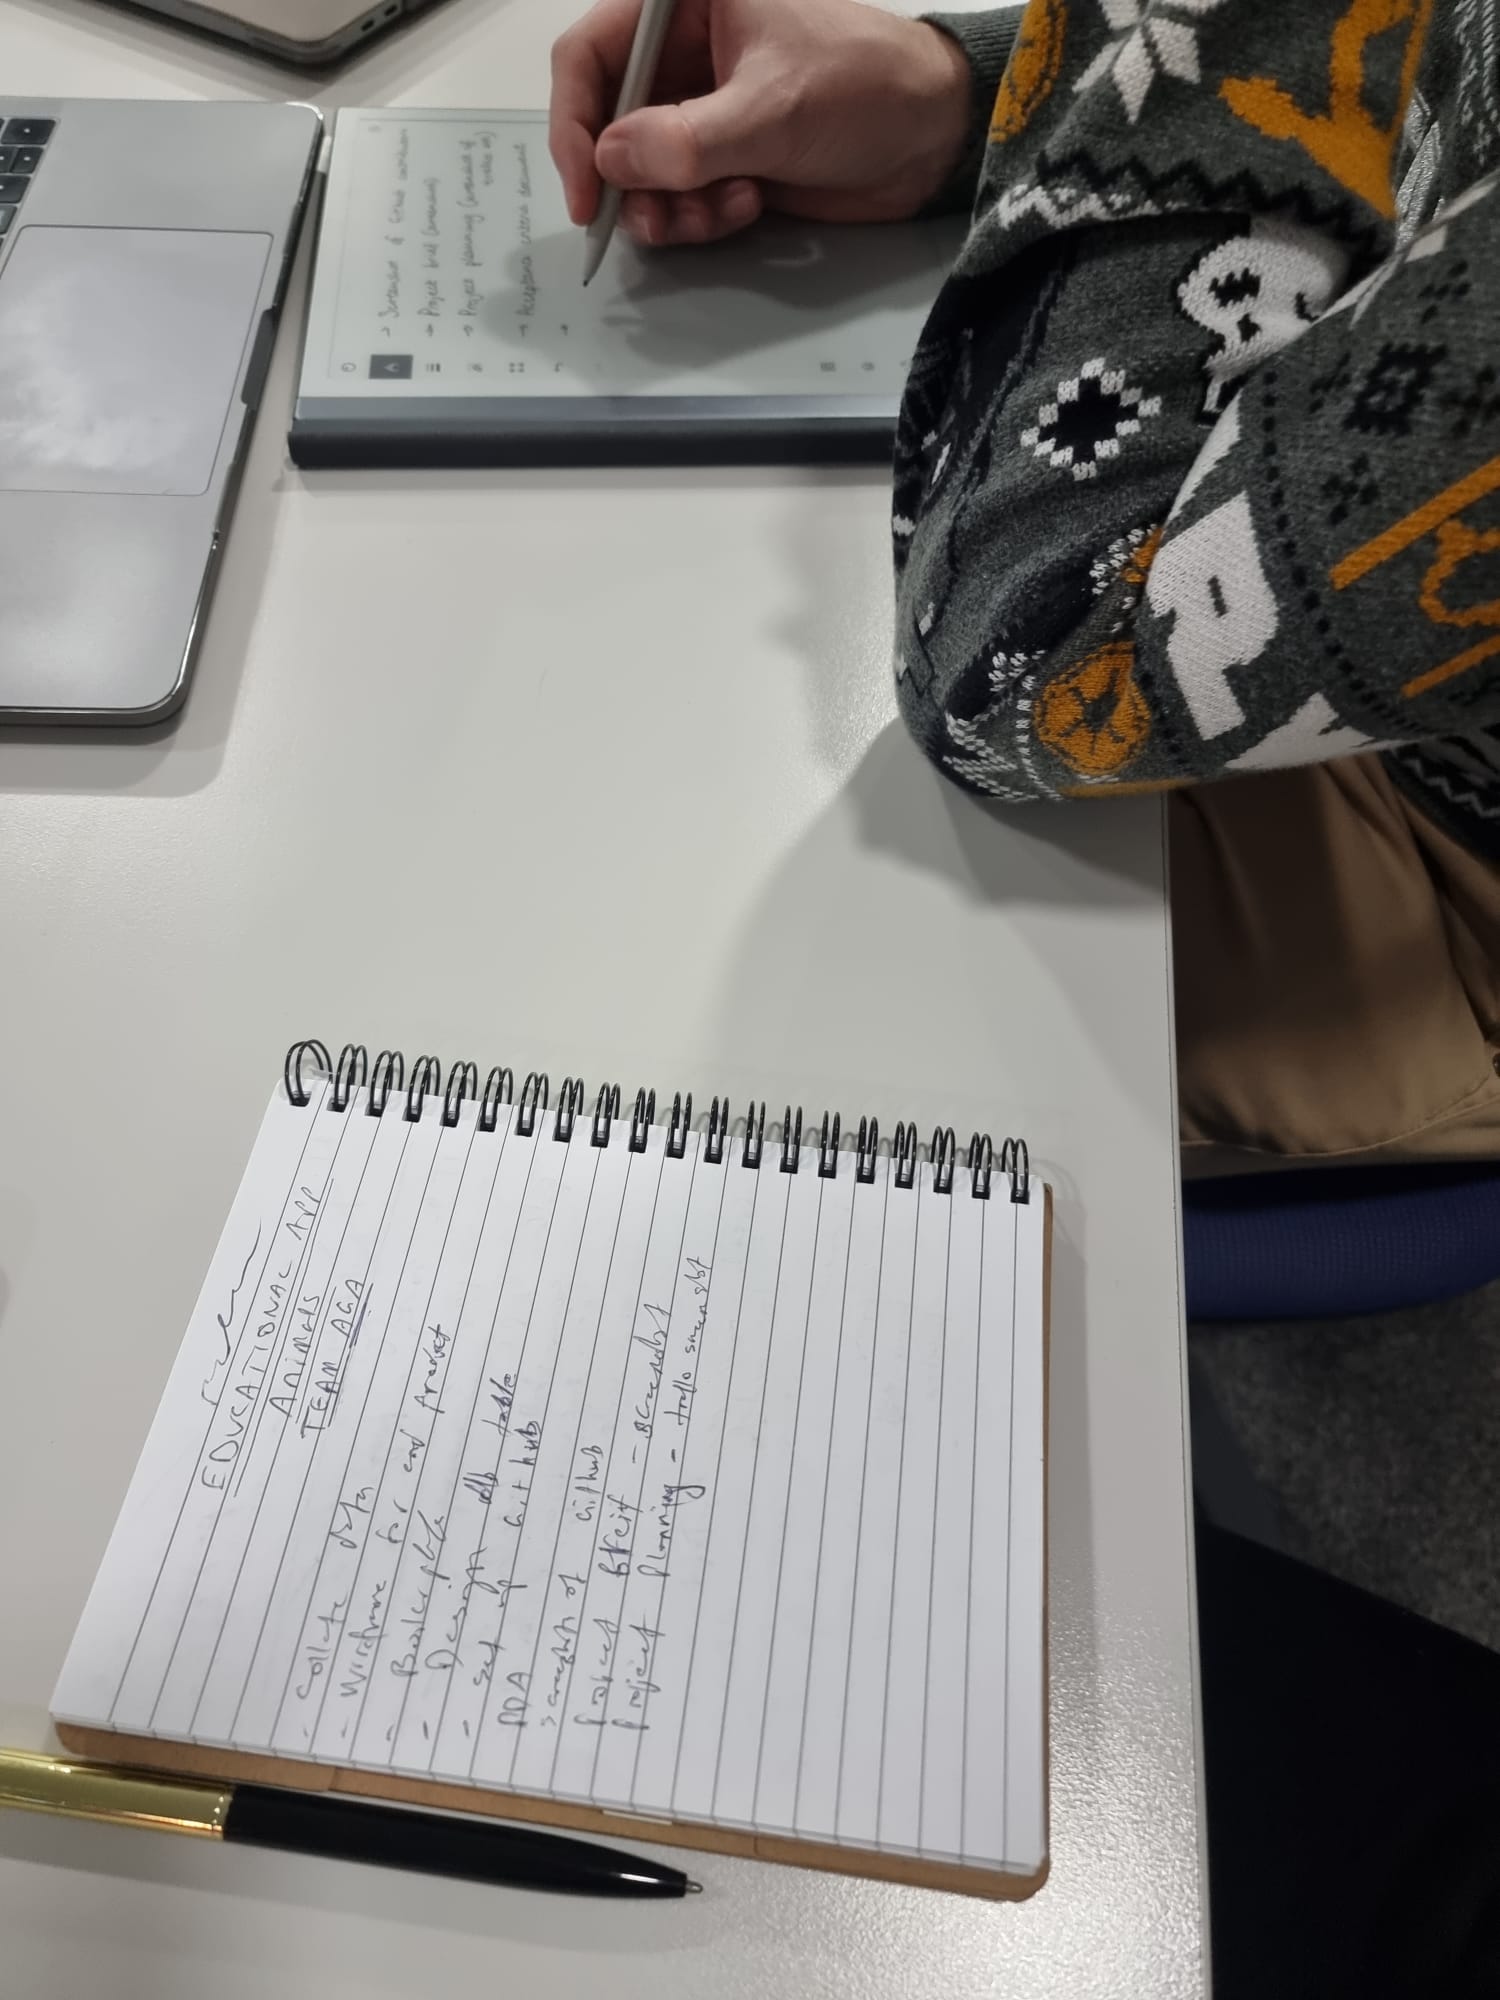 → Screenshot of Github
→ Project brief (screenshot)
→ Project planning (screenshot of
trello etc)
→ Acceptance criteria document
→
EDUCATIONAL APP
ANIMALS
TEAM AGA
- collate data
- Wireframe for end product
- Boilerplate
- Design db table
- set up Git hub
screenshots of Github
Project Breif - screenshot
Project Planning - trello screenshot